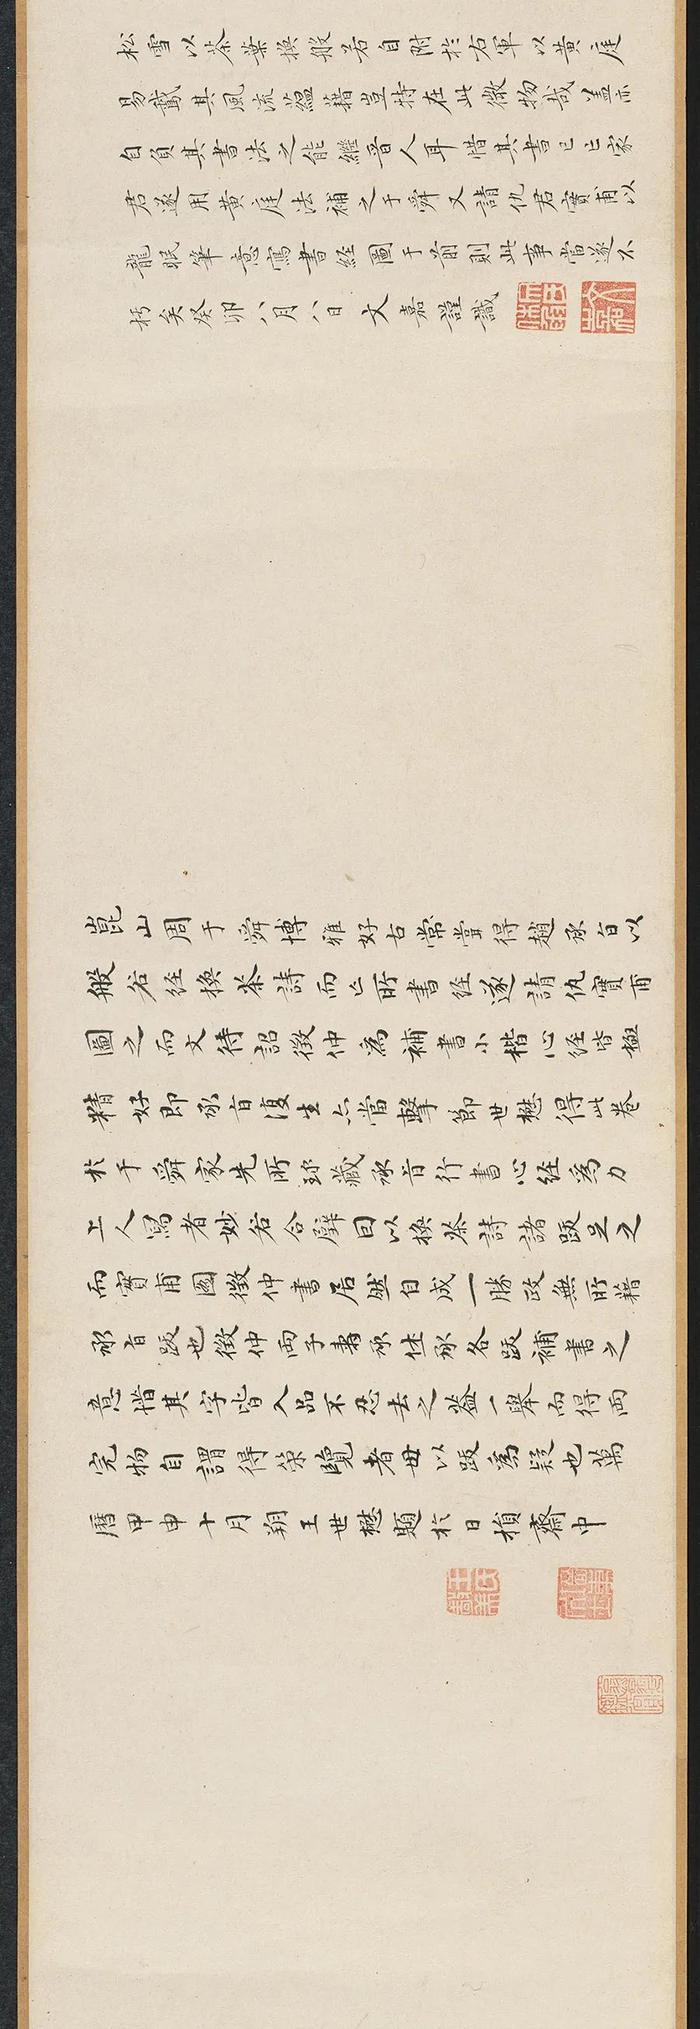 松雪以茶葉換般若自附於右軍以黄庭
易鵞其風流蘊藉豈特在此微物哉葢亦
自負其書法之能繼晉人耳惜其書已亡家
君遂用黄庭法補之于舜又請仇君實甫以
龍眠筆意寫書經圖于前則此事當遂不
朽矣癸卯八月八日文嘉謹識
崑山周于舜博雅好古常嘗得趙承旨以
般若經換茶詩而亡所書經遂請仇實甫
圖之而文待詔徵仲為補書小楷心經皆極
精好即承旨復生亦當擊節世懋得此卷
於于舜家先所珍藏承旨行書心經為力
上人寫者妙若合璧因以換茶詩諸跋足之
而實甫圖徵仲書居然自成一勝政無所藉
承旨跋也徵仲兩子壽承休承各跋補書之
意惜其字皆入品不忍去之葢一舉而得兩
完物自謂得策覽者毋以跋為疑也萬
曆甲申十月朔王世懋題於日損齋中